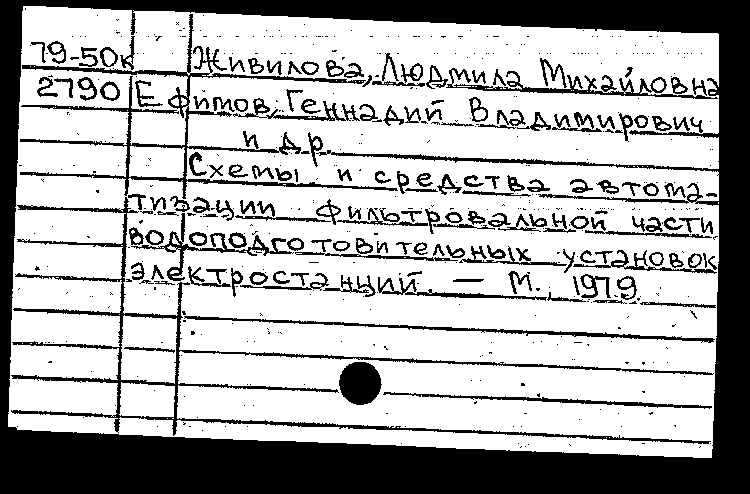 79-50к Живилова, Людмила Михайловна
2790 Ефимов, Геннадий Владимирович
и др.
Схемы и средства автома-
тизации фильтровальной части
водоподготовительных установок
электростанций. — М., 1979